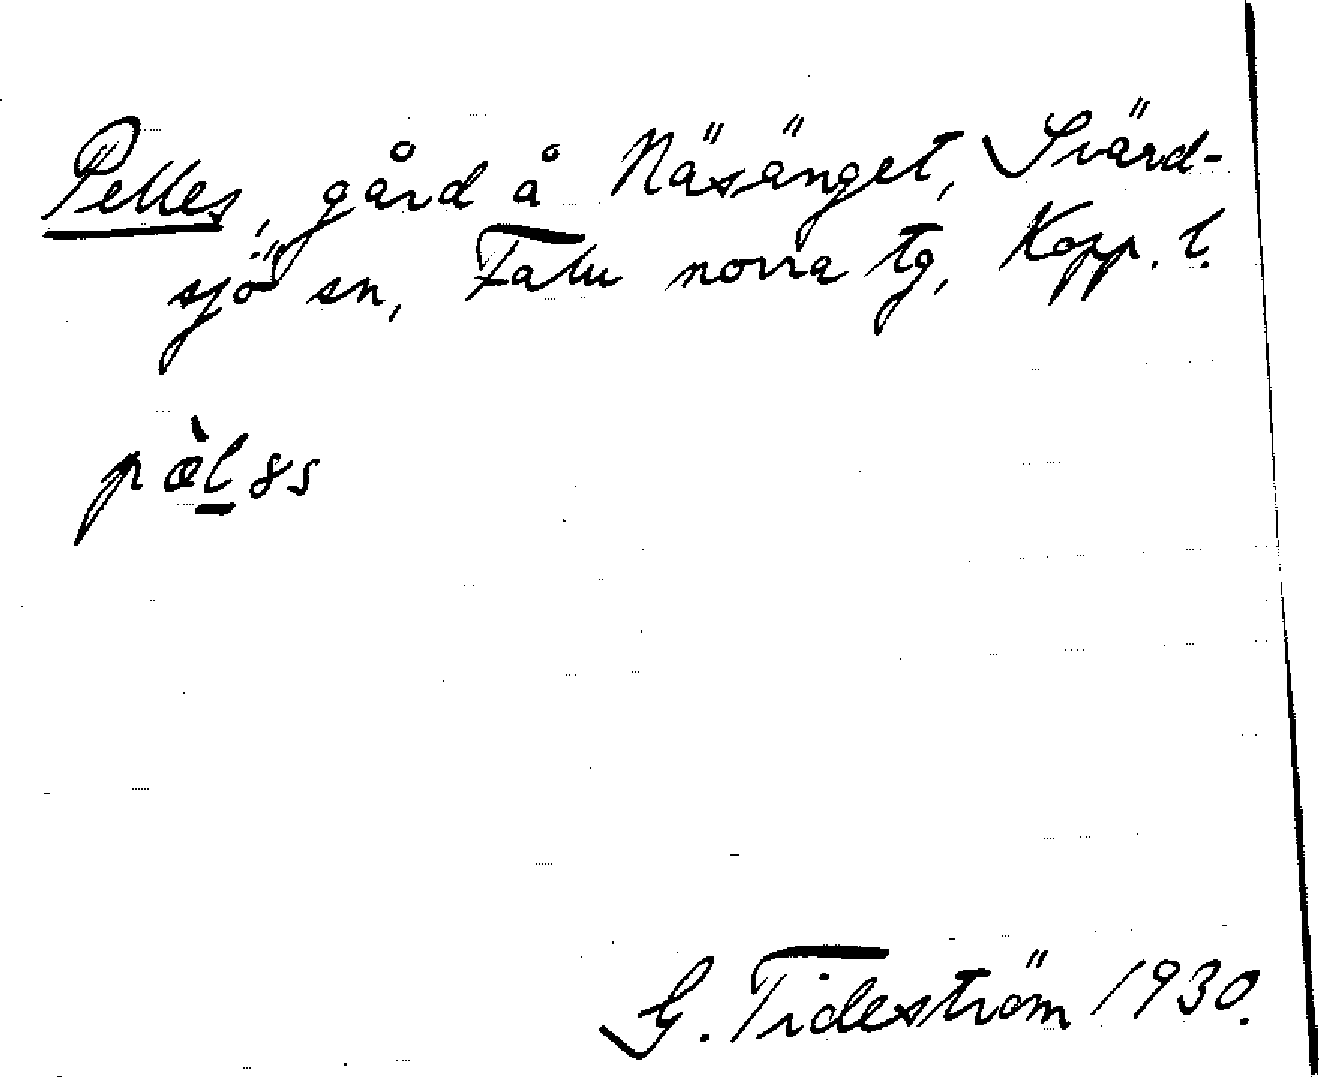 Pelles, gård å Näsänget, Svärd-
sjö sn, Falu norra tg, Kopp. l.
pæ̀l̲əs
G. Tideström 1930.